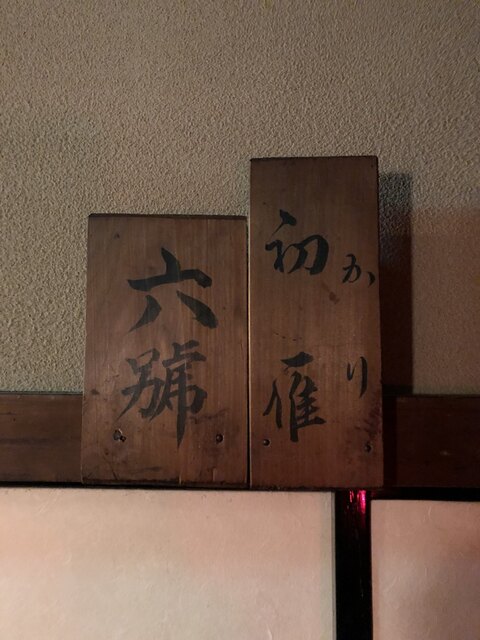 初雁
かり
六號